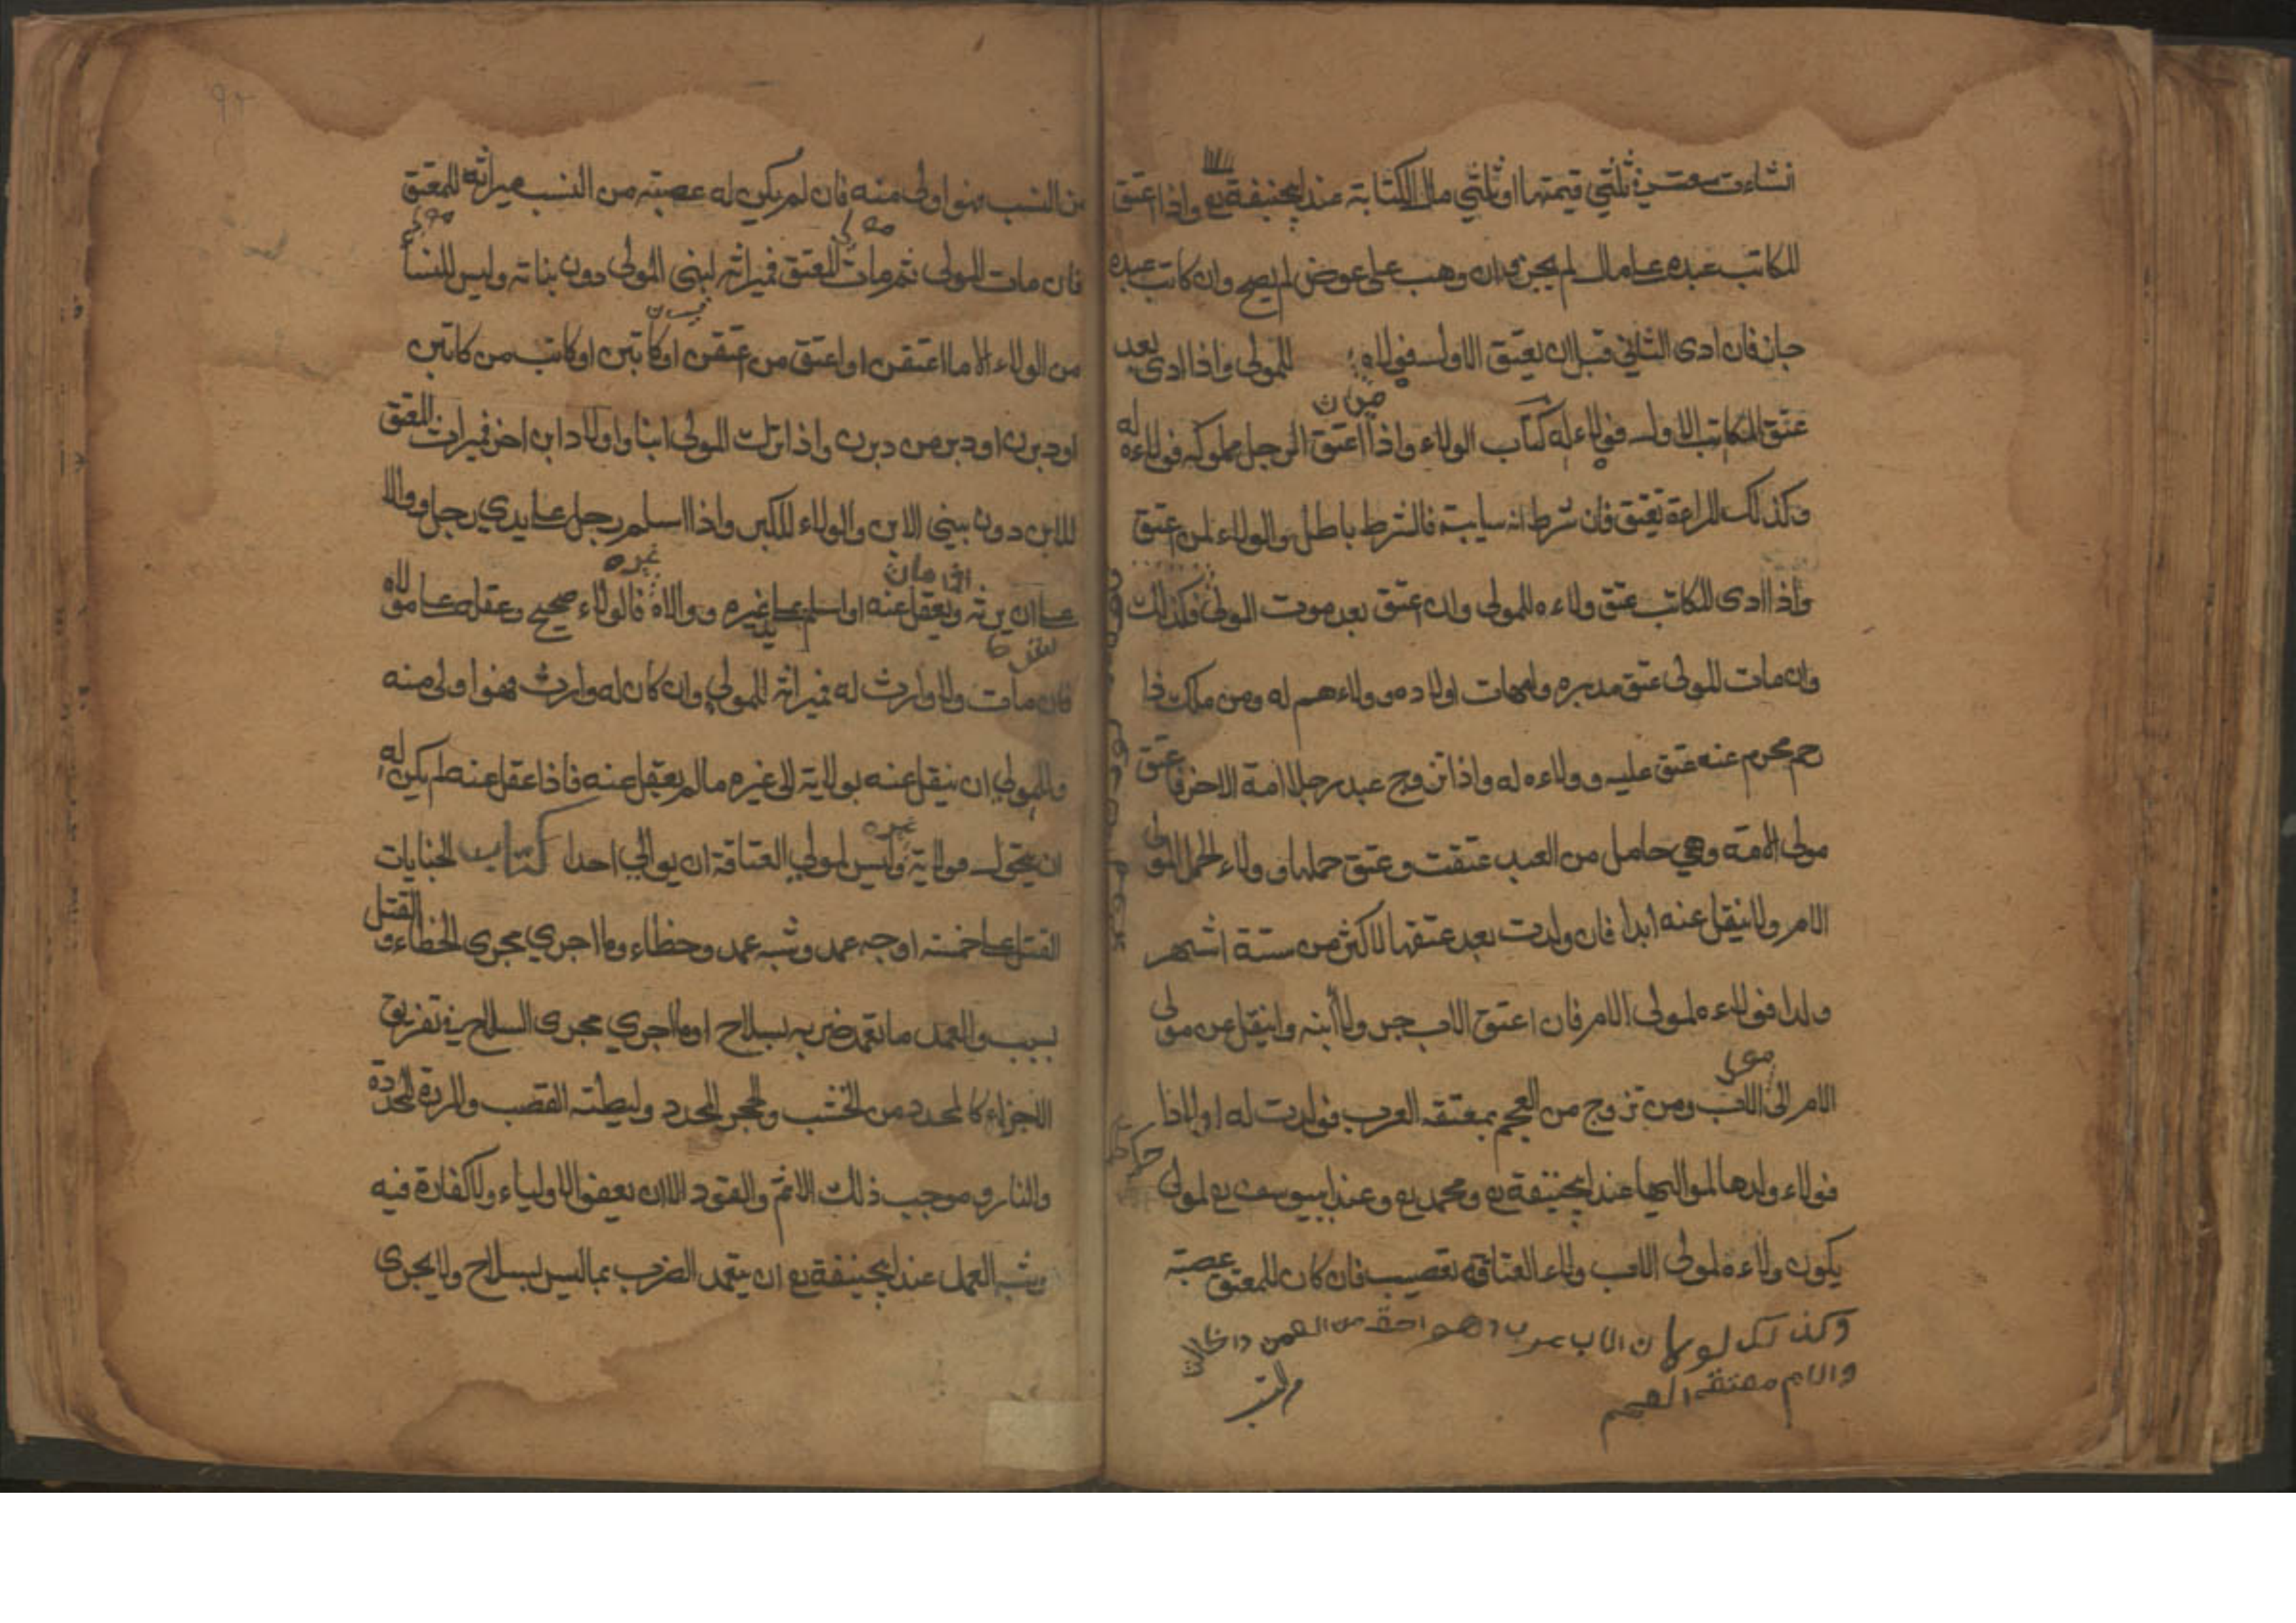 ان شاءت سعت في ثلثي قيمتها او ثلثي مال الكتابة عند ابيحنيفة رح واذا اعتق
المكاتب عبده على مال لم يجز وان وهب على عوض لم يصح وان كاتب عبده
جاز فان ادى الثاني قبل ان يعتق الاول فولاه للمولى واذا ادى بعد
عتق المكاتب الاول فولاءه له كتاب الولاء واذا اعتق الرجل مملوكه فولاءه له
وكذلك المراءة تعتق فان شرط انه سايبة فالشرط باطل والولاء لمن اعتق
واذا ادى المكاتب عتق ولاءه للمولى وان عتق بعد موت المولى فكذلك
وان مات المولى عتق مدبره وامهات اولاده وولاءهم له ومن ملك ذا
رحم محرم عنه عتق عليه وولاءه له واذا تزوج عبد رجل امة الاخر فاعتق
مولى الامة وهي حامل من العبد عتقت وعتق حملها وولاء الحمل لمولى
الام ولا ينقل عنه ابدا فان ولدت بعد عتقها لاكثر من ستة اشهر
ولدا فولاءه لمولى الام فان اعتق الاب جر ولاء ابنه وانتقل عن مولى
الام الى الاب ومن تزوج من العجم بمعتقه العرب فولدت له اولادا
فولاء ولدها لمواليها عند ابيحنيفة رح ومحمد رح وعند ابييوسف رح لمولى
يكون ولاءه لمولى الاب ولاء العتاقه تعصيب فان كان للمعتق عصبة
وكذلك لو كان الاب عرب
والام معتقه العجم
من النسب فهو اولى منه فان لم يكن له عصبته من النسب ميراثه للمعتق
فان مات المولى ثم مات المعتق فميراثه لبني المولى دون بناته وليس للنساء
من الولاء الا ما اعتقن او اعتق من اعتقن او كاتبن او كاتب من كاتبن
او دبرن او دبر من دبرن واذا ترك المولى ابنا واولاد ابن اخر فميراث المعتق
للابن دون بني الابن والولاء للكبر واذا اسلم رجل على يدي رجل ووالا
على ان يرثه ويعقل عنه او اسلم على يد غيره ووالاه فالولاء صحيح وعقله على مولاه
فان مات ولا وارث له فميراثه للمولى وان كان له وارث فهو اولى منه
وللمولى ان ينقل عنه بولاية الى غيره ما لم يعقل عنه فاذا عقل عنه لم يكن له
ان يتحول مولاية وليس لمولى العتاقة ان يوالي احدا كتاب الجنايات
القتل على خمسة اوجه عمد وشبه عمد وخطاء وما اجري مجرى الخطاء والقتل
بسبب والعمد ما تعمد ضربه بسلاح او ما اجري مجرى السلاح في تفريق
الاجزاء كالمحدد من الخشب والحجر المحدد وليطته القصب والمروة المحددة
والنار وموجب ذلك الاثم والقود الا ان يعفو الاولياء ولا كفارة فيه
وشبه العمد عند ابيحنيفة رح ان يتعمد الضرب بما ليس بسلاح ولا يجرى